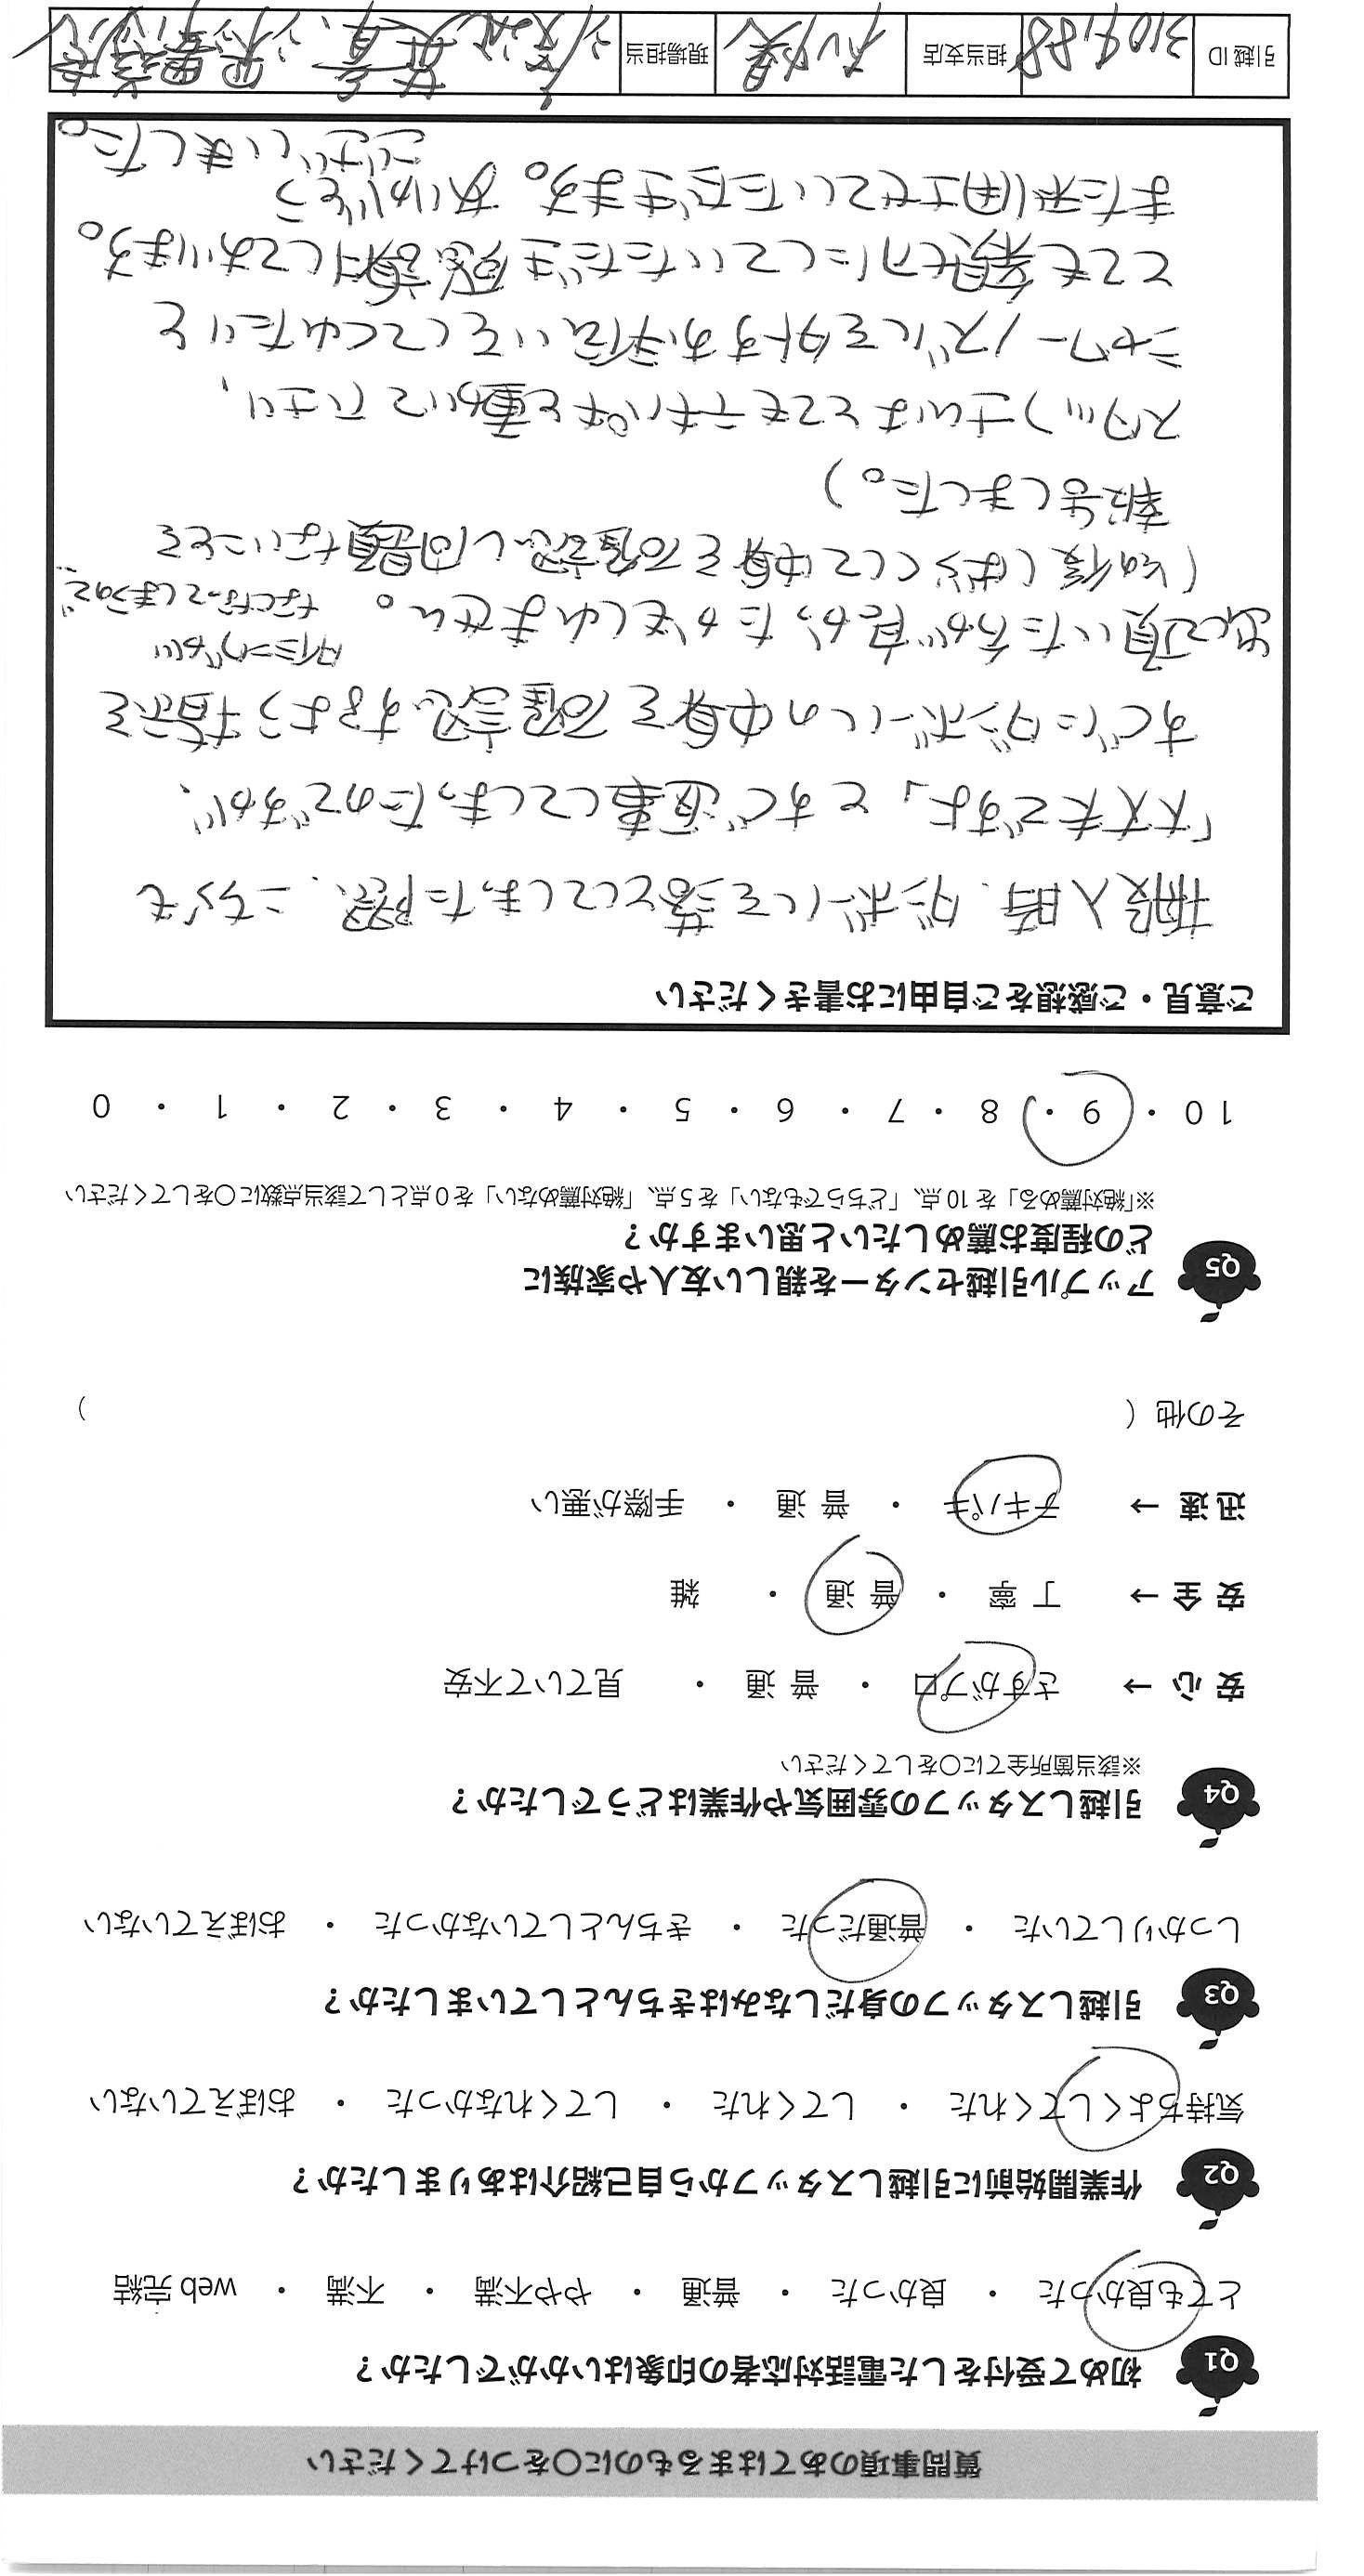 質問事項のあてはまるものに○をつけてください
Q1 初めて受付をした電話対応者の印象はいかがでしたか？
とても良かった ・ 良かった ・ 普通 ・ やや不満 ・ 不満 ・ web 完結
Q2 作業開始前に引越しスタッフから自己紹介はありましたか？
気持ちよくしてくれた ・ してくれた ・ してくれなかった ・ おぼえていない
Q3 引越しスタッフの身だしなみはきちんとしていましたか？
しっかりしていた ・ 普通だった ・ きちんとしていなかった ・ おぼえていない
Q4 引越しスタッフの雰囲気や作業はどうでしたか？
※該当箇所全てに○をしてください
安 心 → さすがプロ ・ 普 通 ・ 見ていて不安
安 全 → 丁 寧 ・ 普 通 ・ 雑
迅 速 → テキパキ ・ 普 通 ・ 手際が悪い
その他（ ）
Q5 アップル引越センターを親しい友人や家族に
どの程度お薦めしたいと思いますか？
※「絶対薦める」を 10 点、「どちらでもない」を 5 点、「絶対薦めない」を 0 点として該当点数に○をしてください
10 ・ 9 ・ 8 ・ 7 ・ 6 ・ 5 ・ 4 ・ 3 ・ 2 ・ 1 ・ 0
ご意見・ご感想をご自由にお書きください
搬入時、ダンボールを落としてしまった際、こちらも
「大丈夫ですよ」とすぐ返事してしまったのですが、
すぐにダンボールの中身を確認するよう指示を
出して頂いた方が良かったかもしれません。
タイミングがい
なくなってしまうので
（その後しばらくして中身を確認し問題ないことを
報告しました。）
スタッフさんはとてもテキパキと動いて下さり、
シャワーノズルを外すお手伝いをしてくれたりと
とても親切にしていただき感謝しております。
また利用させていただきます。ありがとう
ございました。
引越 ID 3109188 担当支店 現場担当